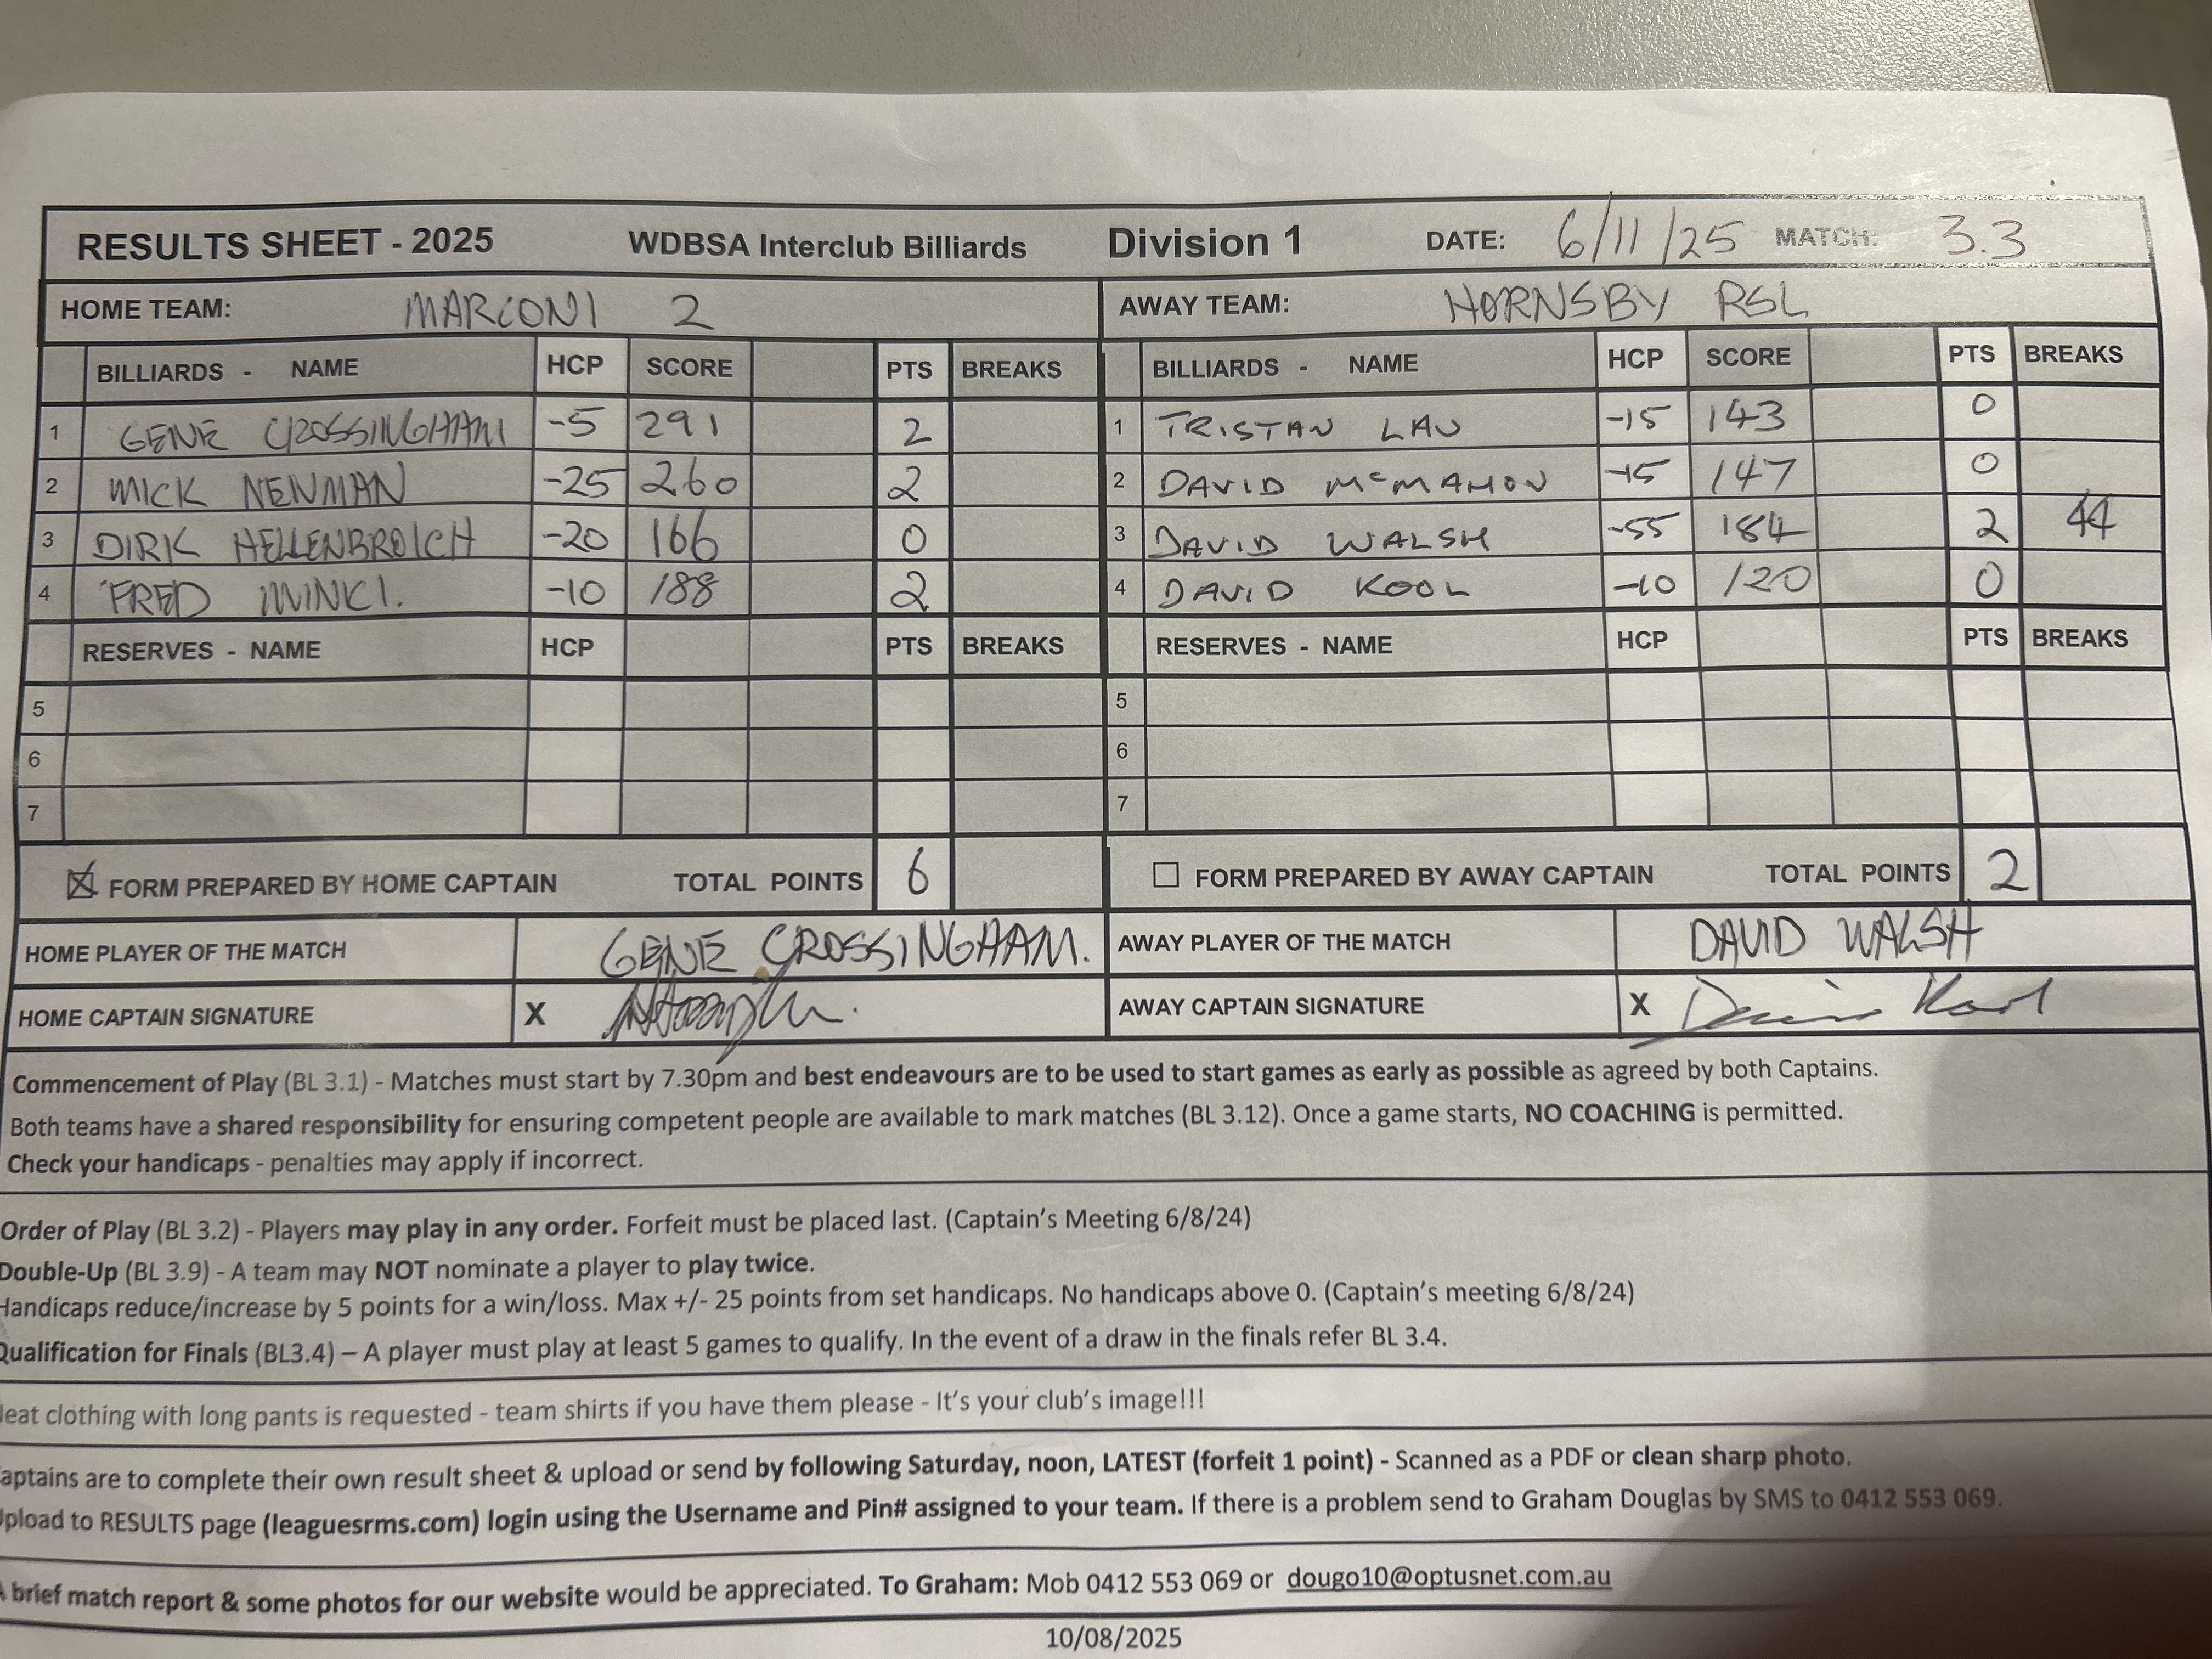 RESULTS SHEET - 2025 WDBSA Interclub Billiards Division 1 DATE: 6/11/25 MATCH: 3.3
HOME TEAM: MARCONI 2 AWAY TEAM: HORNSBY RSL
BILLIARDS - NAME HCP SCORE PTS BREAKS BILLIARDS - NAME HCP SCORE PTS BREAKS
1 GENE CROSSINGHAM -5 291 2 1 TRISTAN LAU -15 143 0
2 MICK NENMAN -25 260 2 2 DAVID McMAHON -15 147 0
3 DIRK HELLENBROICH -20 166 0 3 DAVID WALSH -55 184 2 44
4 FRED MINKI. -10 188 2 4 DAVID KOOL -10 120 0
RESERVES - NAME HCP PTS BREAKS RESERVES - NAME HCP PTS BREAKS
5 5
6 6
7 7
FORM PREPARED BY HOME CAPTAIN TOTAL POINTS 6 FORM PREPARED BY AWAY CAPTAIN TOTAL POINTS 2
HOME PLAYER OF THE MATCH GENE CROSSINGHAM. AWAY PLAYER OF THE MATCH DAVID WALSH
HOME CAPTAIN SIGNATURE X AWAY CAPTAIN SIGNATURE X
Commencement of Play (BL 3.1) - Matches must start by 7.30pm and best endeavours are to be used to start games as early as possible as agreed by both Captains.
Both teams have a shared responsibility for ensuring competent people are available to mark matches (BL 3.12). Once a game starts, NO COACHING is permitted.
Check your handicaps - penalties may apply if incorrect.
Order of Play (BL 3.2) - Players may play in any order. Forfeit must be placed last. (Captain's Meeting 6/8/24)
Double-Up (BL 3.9) - A team may NOT nominate a player to play twice.
Handicaps reduce/increase by 5 points for a win/loss. Max +/- 25 points from set handicaps. No handicaps above 0. (Captain's meeting 6/8/24)
Qualification for Finals (BL3.4) – A player must play at least 5 games to qualify. In the event of a draw in the finals refer BL 3.4.
eat clothing with long pants is requested - team shirts if you have them please - It's your club's image!!!
aptains are to complete their own result sheet & upload or send by following Saturday, noon, LATEST (forfeit 1 point) - Scanned as a PDF or clean sharp photo.
pload to RESULTS page (leaguesrms.com) login using the Username and Pin# assigned to your team. If there is a problem send to Graham Douglas by SMS to 0412 553 069.
A brief match report & some photos for our website would be appreciated. To Graham: Mob 0412 553 069 or dougo10@optusnet.com.au
10/08/2025